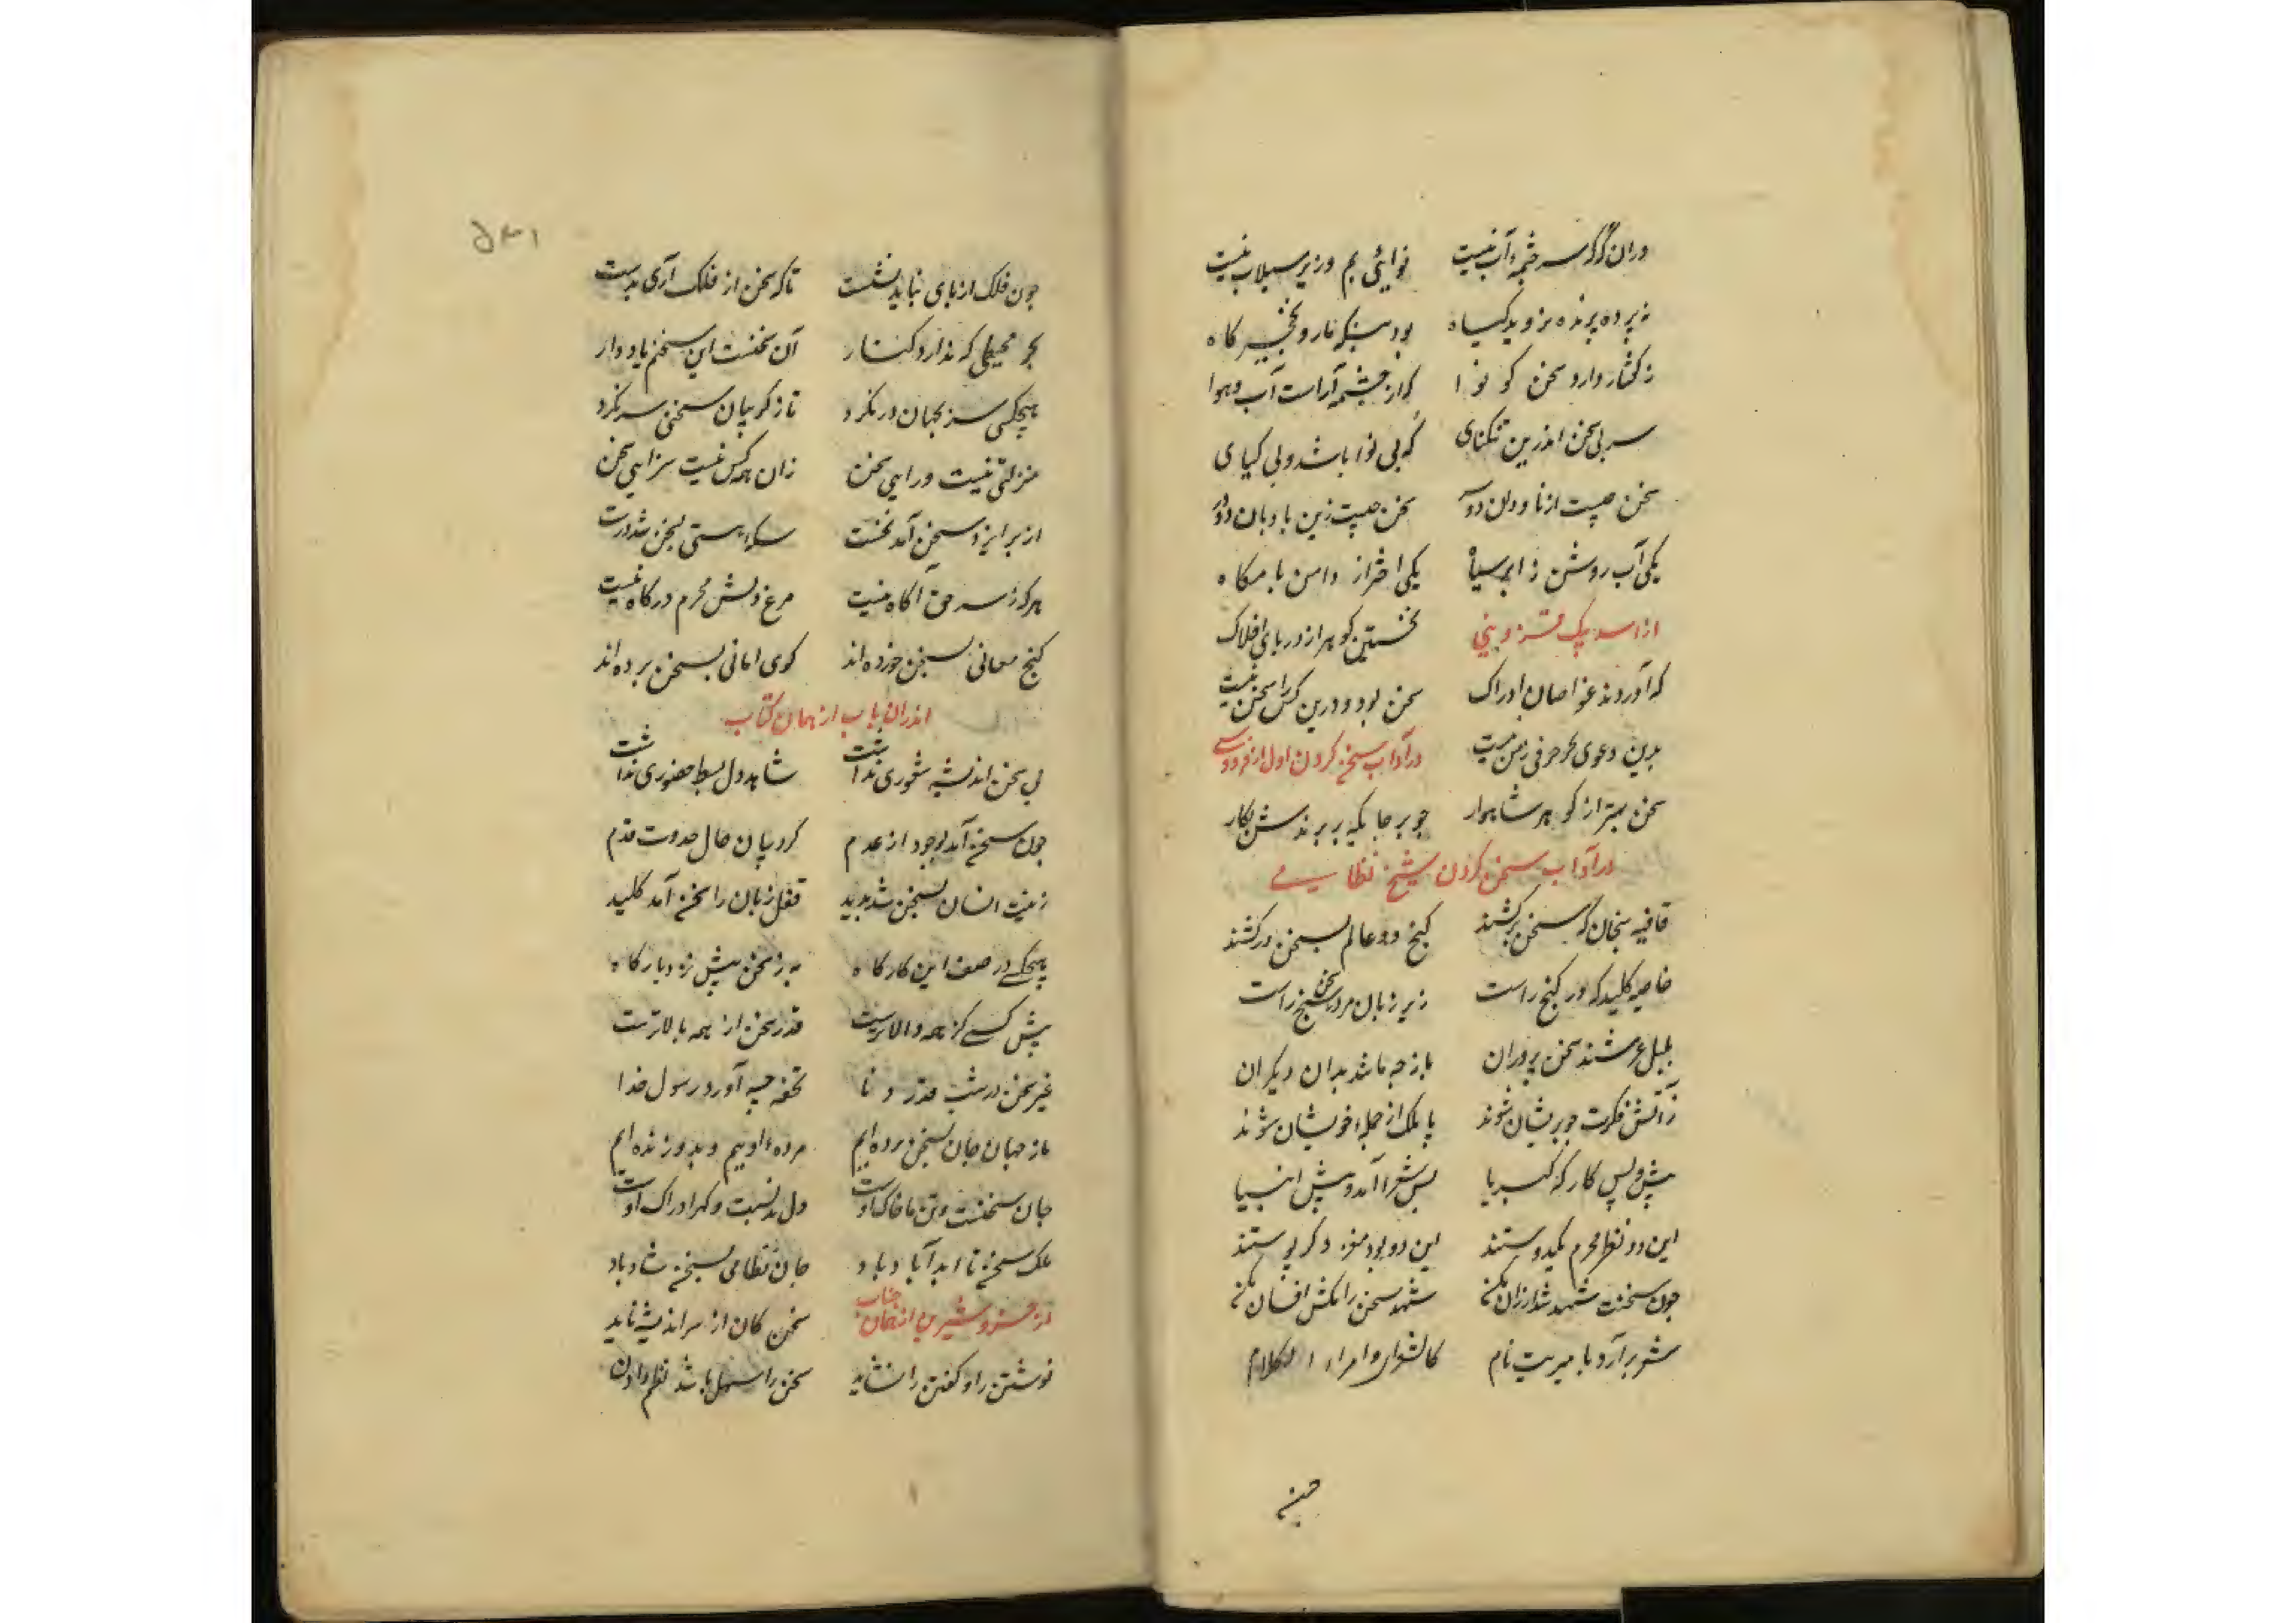 دران کوکه سرچشمهٔ آب نیست نوائی بم و زیر سیلاب نیست
نه پرده پرنده نروید کیاه بود سنکسار و نخجیرکاه
ز کفتار دارد سخن کو نوا که از چشمه آراست آب و هوا
سر بی سخن اندرین تنکنای که بی نوا باشد و بی کیای
سخن چیست از ناودان دو سخن چیست زین بادبان دود
یکی آب روشن ز ابر سیاه یکی اختر از دامن بامکاه
از اسد بیک قزوینی نخستین کوهر از دریای افلاک
که آوردند غواصان ادراک سخن بود و درین کس را سخن نیست
بدین دعوی کو حرفی زمن نیست در آداب سخن کردن اول از فردوسی
سخن بهتر از کوهر شاهوار چو بر جایکه بر برندش بکار
در آداب سخن کردن شیخ نظامی
قافیه سنجان که سخن برکشند کنج دو عالم بسخن درکشند
خاصه کلیدکه در کنج راست زیر زبان مرد سخن سنج راست
بلبل عرشند سخن پروران باز چه مانند بدان دیکران
زآتش فکرت چو پریشان شوند با ملک از جمله خویشان شوند
پیش و پس کارکه کبریا پس شعرا آمد و پیش انبیا
این دو نظر محرم یکدوستند این دو بود مغز و دکر پوستند
چون سخنت شهد شد ارزان مکن شهد سخن را مکش افشان مکن
شعر برآرد بامیریت نام کالشعرا و امراء الکلام
۵۳۱
چون فلک از پای نباید نشست تا که سخن از فلک آری بدست
بحر محیطی که ندارد کنار آن سخنست این سخنم یاد دار
هیچکس سر بجهان درنکرد تا ز کریبان سخن سر نکرد
منزلتی نیست ورای سخن زان همه کس نیست سزای سخن
از بر ایزد سخن آمد نخست سکه هستی بسخن شد درست
هرکه ز سر حق آکاه نیست مرغ دلش محرم درکاه نیست
کنج معانی بسخن خورده‌اند کوی امانی بسخن برده‌اند
اندران باب از همان کتاب
بی سخن اندیشه شعوری نداشت شاهد دل بسط حضوری نداشت
چون سخن آمد بوجود از عدم کرد بیان حال حدوث قدم
زینت انسان بسخن شد پدید قفل زبان را سخن آمد کلید
هیچکس در صف این کارکاه به ز سخن پیش نزد بارکاه
پیش کسی کز همه والاترست قدر سخن از همه بالاترست
غیر سخن در شب قدر دنا تحفه چه آورد رسول خدا
ما ز جهان جان بسخن برده‌ایم مرده اوییم و بدو زنده‌ایم
جان سخنست و تن ما خاک اوست دل بدنسبت و کهر ادراک اوست
ملک سخن تا ابد آباد باد جان نظامی بسخن شاد باد
از خسرو شیرین از همان جناب سخن کان از سر اندیشه ناید
نوشتن را و کفتن را نشاید سخن را سهل باشد نظم دادن